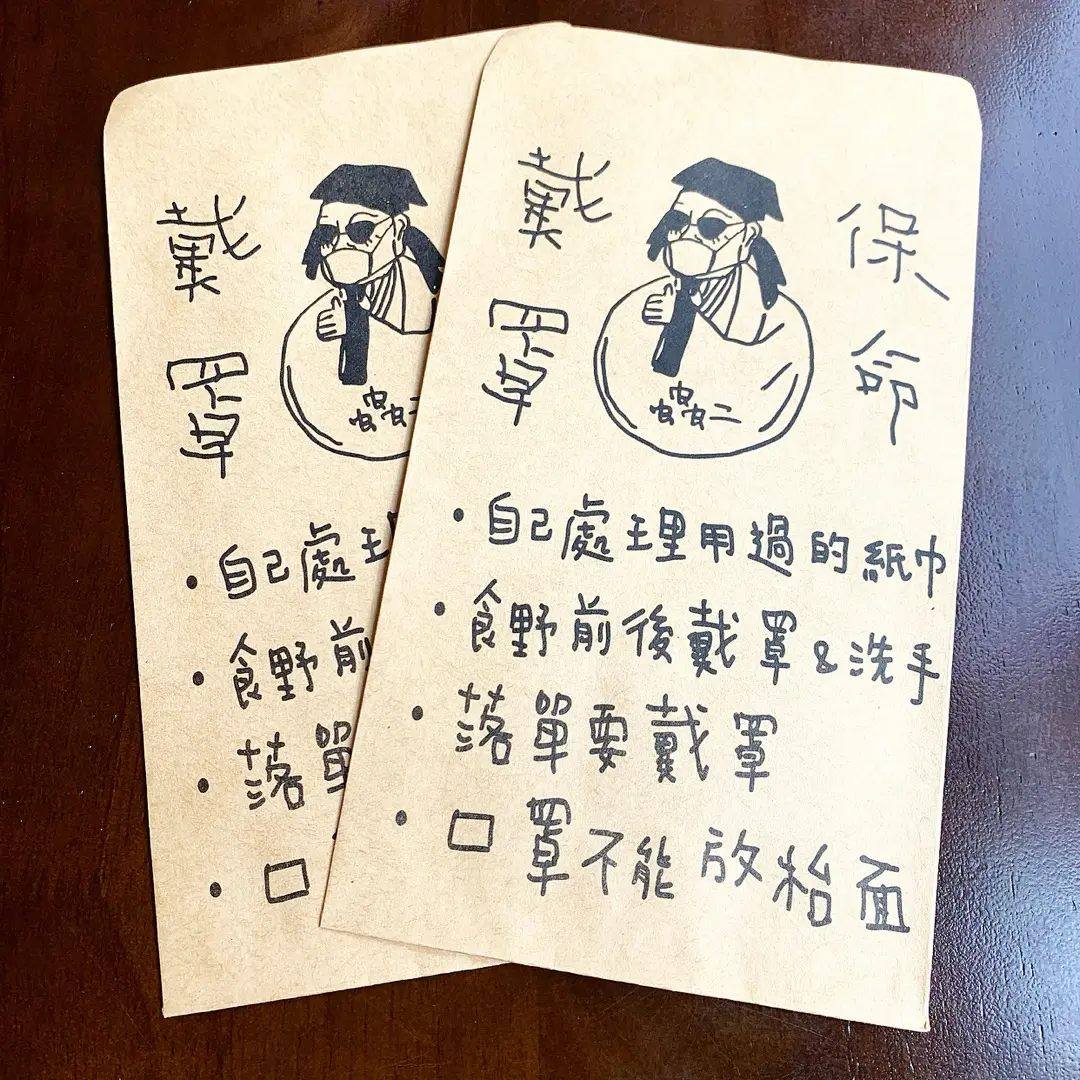 戴罩
蟲
・自己處
・食野前
・落單
・口
戴罩
保命
蟲二
・自己處理用過的紙巾
・食野前後戴罩&洗手
・落單要戴罩
・口罩不能放枱面